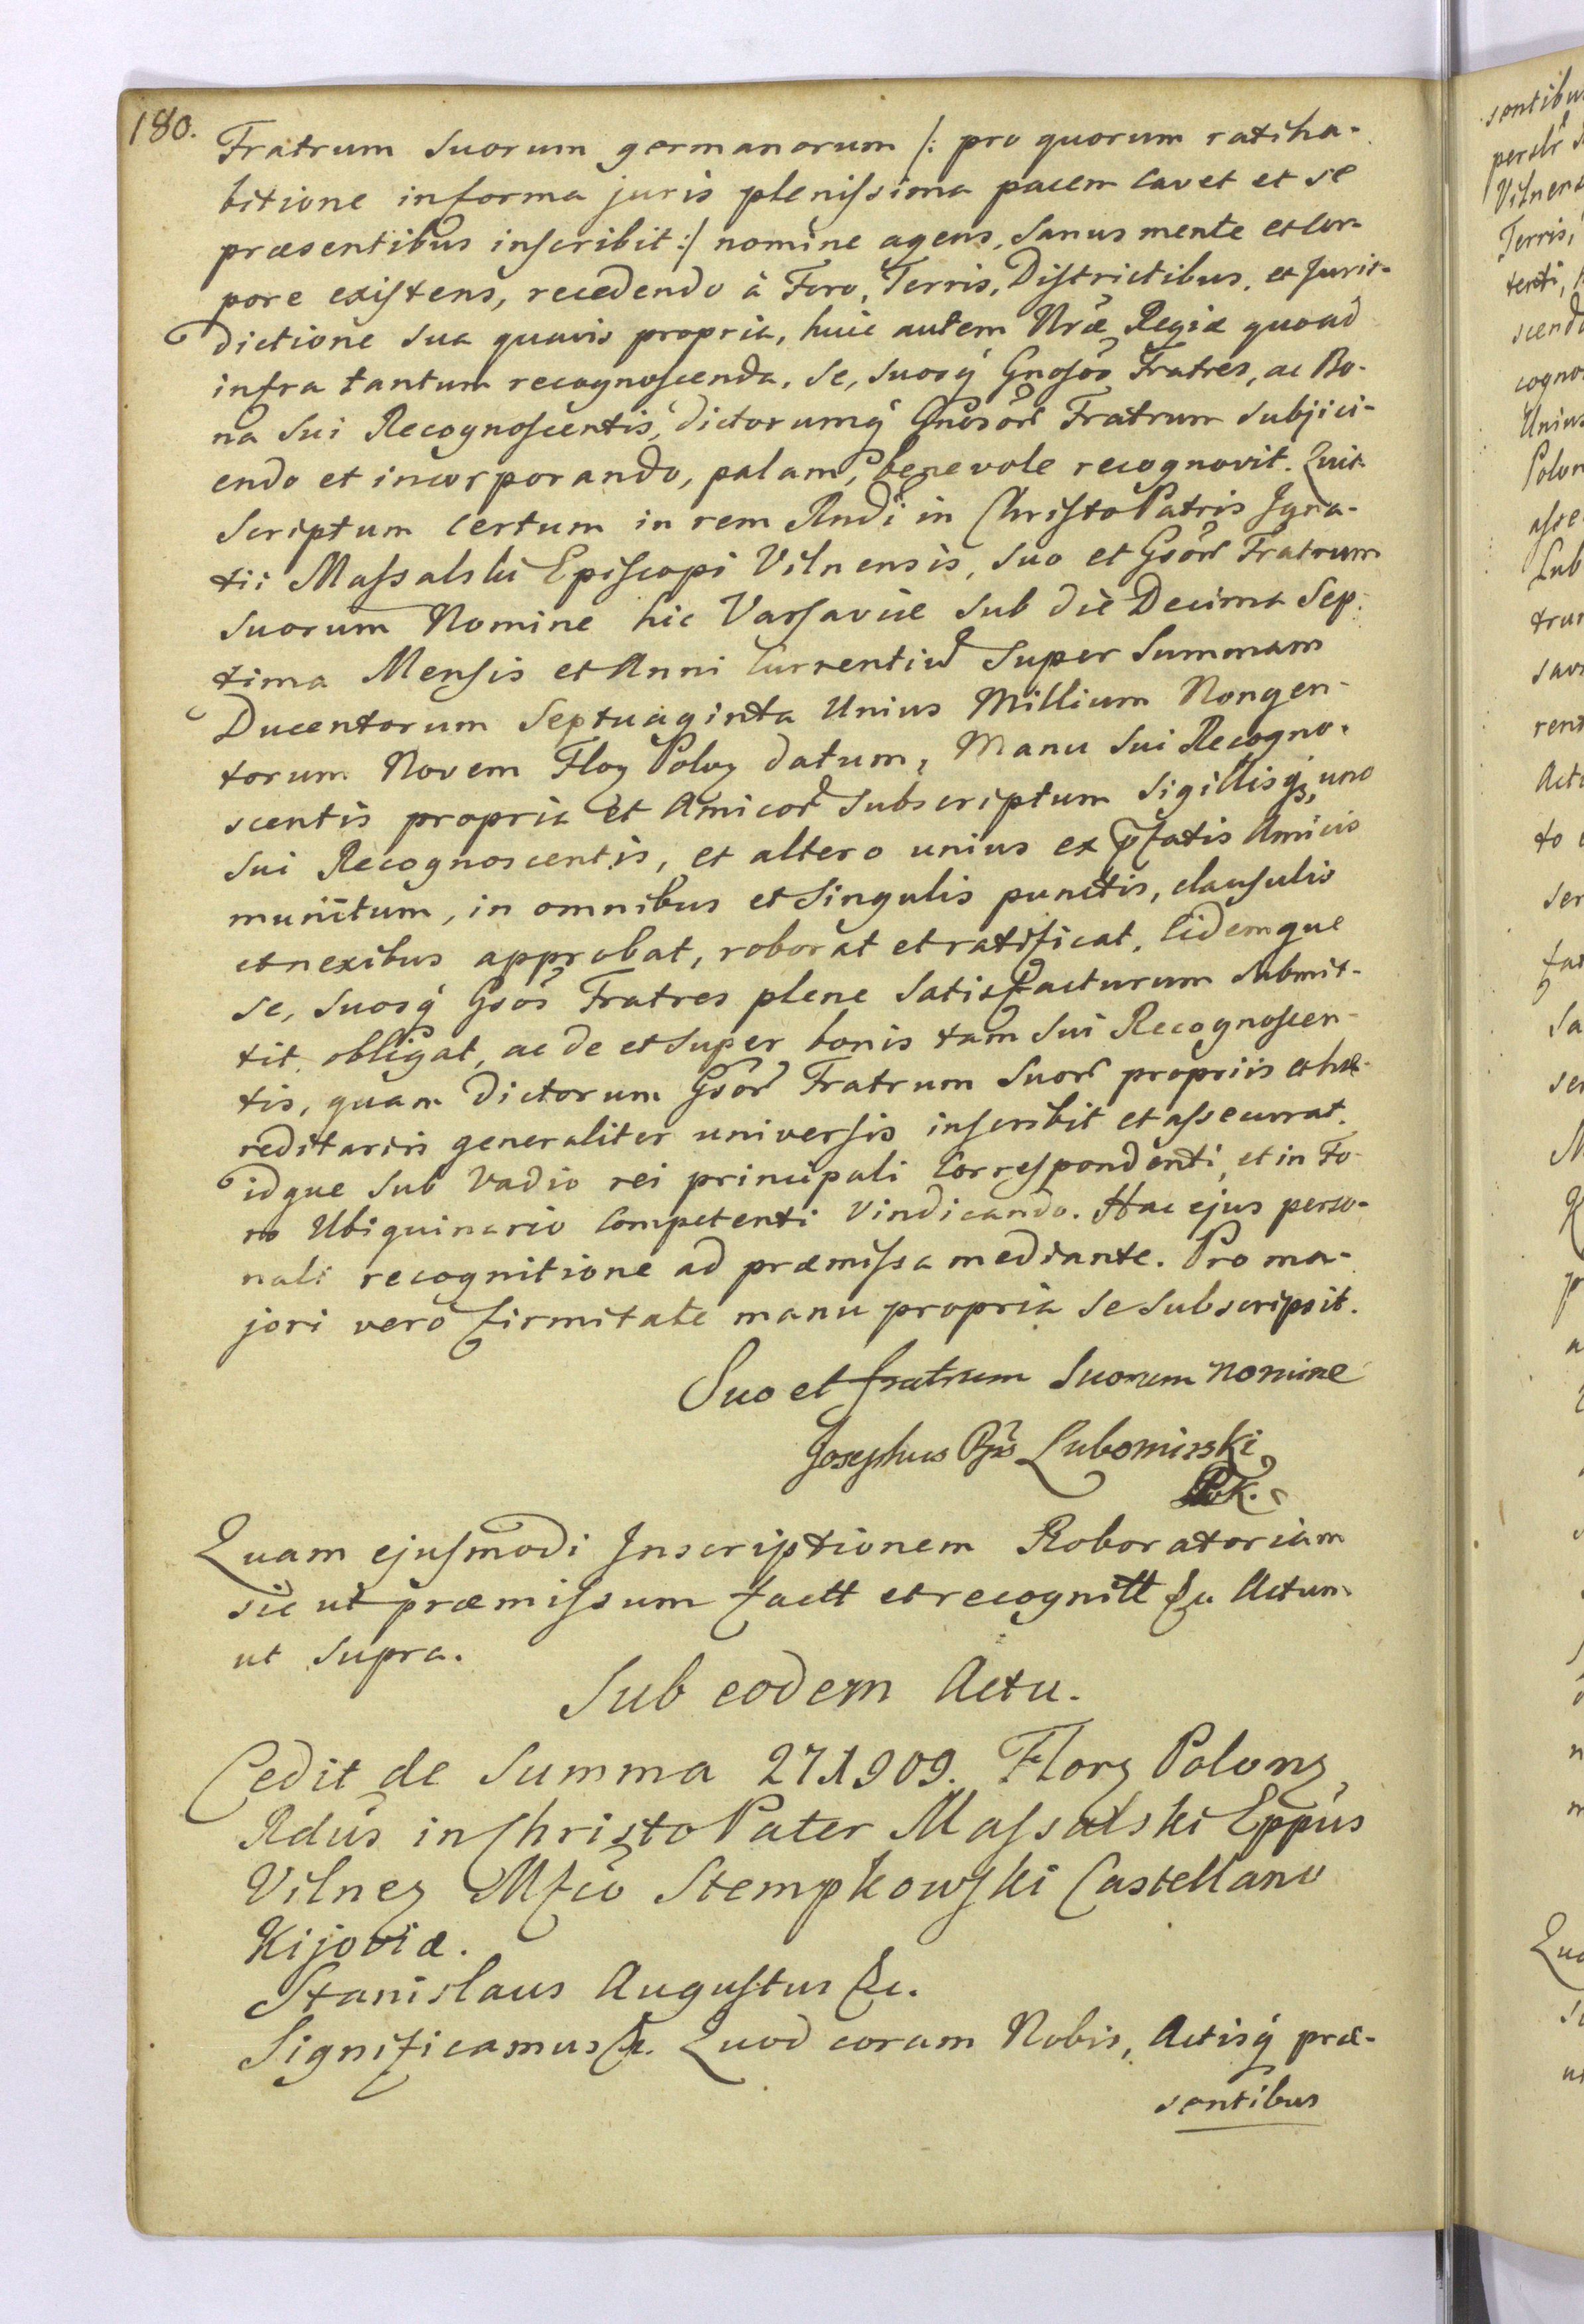 180.
Fratrum Suorum germanorum /: pro quorum ratiha-
bitione informa juris plenissima pacem cavet et se
præsentibus inscribit :/ nomine agens, Sanus mente et cor-
pore existens, recedendo à Foro, Terris, Districtibus, et Juris-
dictione sua quavis propria, huic autem Nrãe Regiæ quoad
infra tantum recognoscenda, Se, Suosq́ Gnosõs Fratres, ac Bo-
na Sui Recognoscentis, dictorumq́ Gnosõr Fratrum Subjici-
endo et incorporando, palam, benevole recognovit. Quit
Scriptum Certum in rem Rndĩ in Christo Patris Igna-
tii Massalski Episcopi Vilnensis, Suo et Gsõr Fratrum
Suorum Nomine hic Varsaviæ Sub die Decima Sep-
tima Mensis et Anni Currentiũ Super Summam
Ducentorum Septuaginta Unius Millium Nongen-
torum Novem Floꝝ Poloꝝ datum, Manu Sui Recogno-
scentis propria et Amicor Subscriptum Sigillisq́ꝫ, uno
Sui Recognoscentis, et altero unius ex p̃fatis Amicis
munitum, in omnibus et Singulis punctis, clausulis
et nexibus approbat, roborat et ratificat, Eidemque
Se, Suosq́ Gsõs Fratres plene Satisfacturum Submit-
tit, obligat, ac de et Super bonis tam Sui Recognoscen-
tis, quam Dictorum Gsõr Fratrum Suor propriis et hæ-
reditariis generaliter universis inscribit et assecurat.
idque Sub Vadio rei principali Correspondenti, et in Fo-
ro Ubiquinario Competenti Vindicando. Hac ejus perso-
nali recognitione ad præmissa mediante. Pro ma-
jori verò firmitate manu propria Se Subscripsit.
Suo et fratrum Suorum nomine
Josephus Lubomirski
Quam ejusmodi Inscriptionem Roboratoriam
sic ut præmissum factt et recognitt &c Actum
ut Supra.
Sub eodem Actu.
Cedit de Summa 271909. Florꝝ Polonꝝ
Rdũs in Christo Pater Massalski Eppũs
Vilneꝝ Mfcõ Stempkowski Castellano
Kijoviæ.
Stanislaus Augustus &c.
Significamus &c. Quod coram Nobis, Actisq́ præ-
sentibus